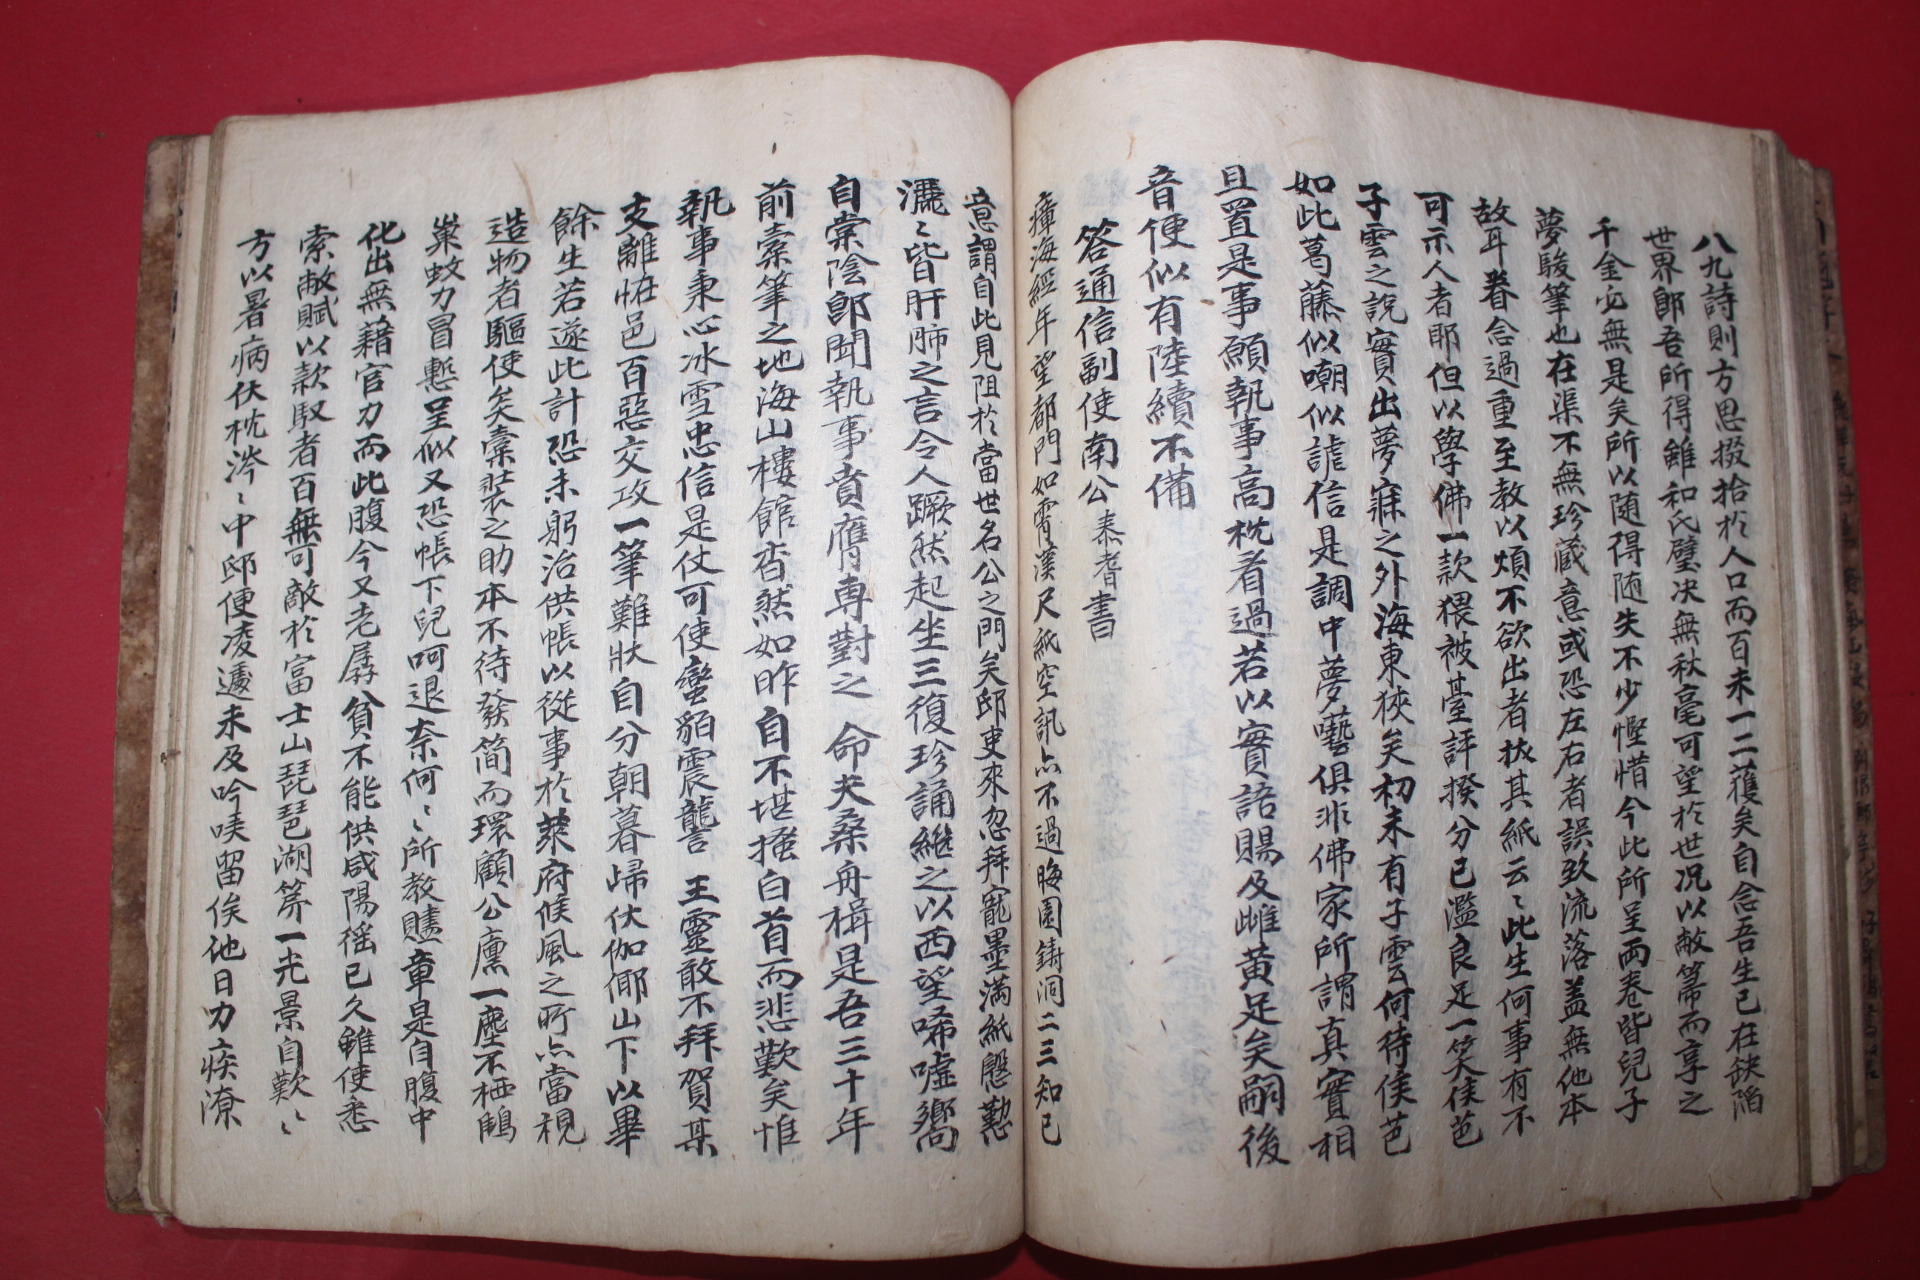 八九詩則方思掇拾於人口而百未一二獲矣自念吾生已在缺陷
世界郎吾所得雖和氏璧决無秋毫可望於世况以敝箒而享之
千金必無是矣所以随得随失不少慳惜今此所呈两卷皆兒子
夢駿筆也在渠不無珍藏意或恐左右者誤致流落盖無他本
故耳眷念過重至教以煩不欲出者投其紙云〻此生何事有不
可示人者耶但以學佛一款猥被臺評揆分已濫良足一笑侯芭
子雲之説實出夢寐之外海東狹矣初未有子雲何待侯芭
如此葛藤似嘲似謔信是調中夢囈俱非佛家所謂真實相
且置是事願執事高枕看過若以實語賜及雌黄足矣嗣後
音便似有陸續不備
答通信副使南公泰耆書
瘴海經年望都門如霄漢尺紙空訊亦不過晦園鋳洞二三知已
意謂自此見阻於當世名公之門矣邸吏來忽拜寵墨満紙慇懃
灑〻皆肝肺之言令人蹶然起坐三復珍誦継之以西望唏噓嚮
自棠陰郎聞執事賁膺専對之 命夫桑舟楫是吾三十年
前橐筆之地海山樓館杳然如昨自不堪搔白首而悲歎矣惟
執事秉心冰雪忠信是仗可使蠻貊震讋 王靈敢不拜賀某
支離恠邑百惡交攻一筆難狀自分朝暮歸伏伽倻山下以畢
餘生若遂此計恐未躬治供帳以從事於萊府候風之所亦當視
造物者驅使矣橐装之助本不待發简而環顧公廩一塵不栖鵰
巢蚊力冒慙呈似又恐帳下兒呵退奈何〻所教贐章是自腹中
化出無藉官力而此腹今又老孱貧不能供咸陽徭已久雖使悉
索敝賦以款馭者百無可敵於富士山琵琶湖等一光景自歎〻
方以暑病伏枕涔〻中邸便凌遽未及吟唊留俟他日力疾潦